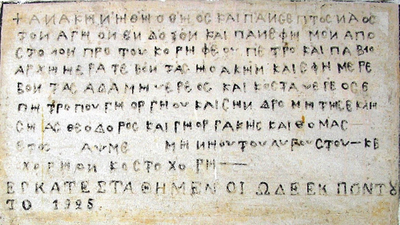 ΑΝΑΚΗΝΗΘΗ Ο ΘΗΟΣ ΚΑΙ ΠΑΝΣΕΠΤΟΣ ΝΑΟΣ
ΤΟΝ ΑΓΗ ΟΝ ΕΝΔΟΞΟΝ ΚΑΙ ΠΑΝΕΦΗΜΟΝ ΑΠΟ
ΣΤΟΛΟΝ ΠΡΟΤΟΥ ΚΟΡΗΦΕΟΥ ΠΕΤΡΟ ΚΑΙ ΠΑΒΛΟ
ΑΡΧΗΗΕΡΑΤΕΒΟΝΤΑΣ ΚΑΙ ΕΦΗΜΕΡΕ
ΒΟΝΤΑΣ ΑΔΑΜ ΗΕΡΕΟΣ ΚΑΙ ΚΟΣΤΑ ΗΕΡΕΟΣ Ε
ΠΗΤΡΟΠΟΥ ΓΗΟΡΓΗΟΥ ΚΑΙ ΣΗΝΔΡΟΜΗ ΤΗΣ ΕΚΛΗ
ΣΗΑΣ ΘΕΟΔΟΡΟΣ ΚΑΙ ΓΗΟΡΓΑΚΗΣ ΚΑΙ ΘΟΜΑΣ
ΕΤΟΣ ΑΥΜΕ ΜΗΝΗ ΟΥΓΟΥΣΤΟΥ ΚΕ
ΧΟΡΗΟΝ ΚΟΣΤΟΧΟΡΗ
ΕΓΚΑΤΕΣΤΑΘΗΜΕΝ ΟΙ ΩΔΕ ΕΚ ΠΟΝΤΟΥ
ΤΟ 1925.